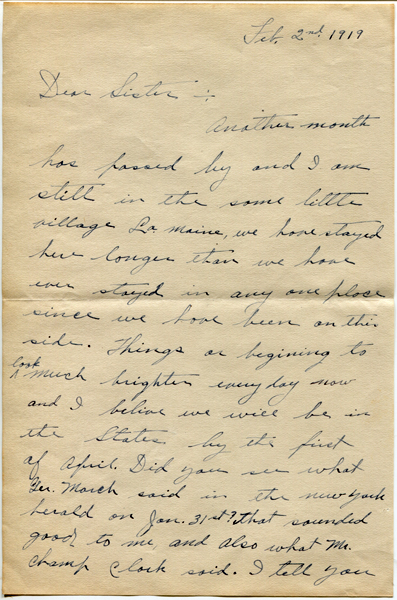 Feb. 2nd 1919
Dear Sister :-
Another month
has passed by and I am
still in the same little
village La Maine, we have stayed
here longer than we have
ever stayed in any one place
since we have been on this
side. Things ar begining to
look
^ much brighter everyday now
and I belive we will be in
the States by the first
of April. Did you see what
Gen. March said in the new york
herald on Jan. 31st? That sounded
good to me, and also what Mr.
Champ Clark said. I tell you